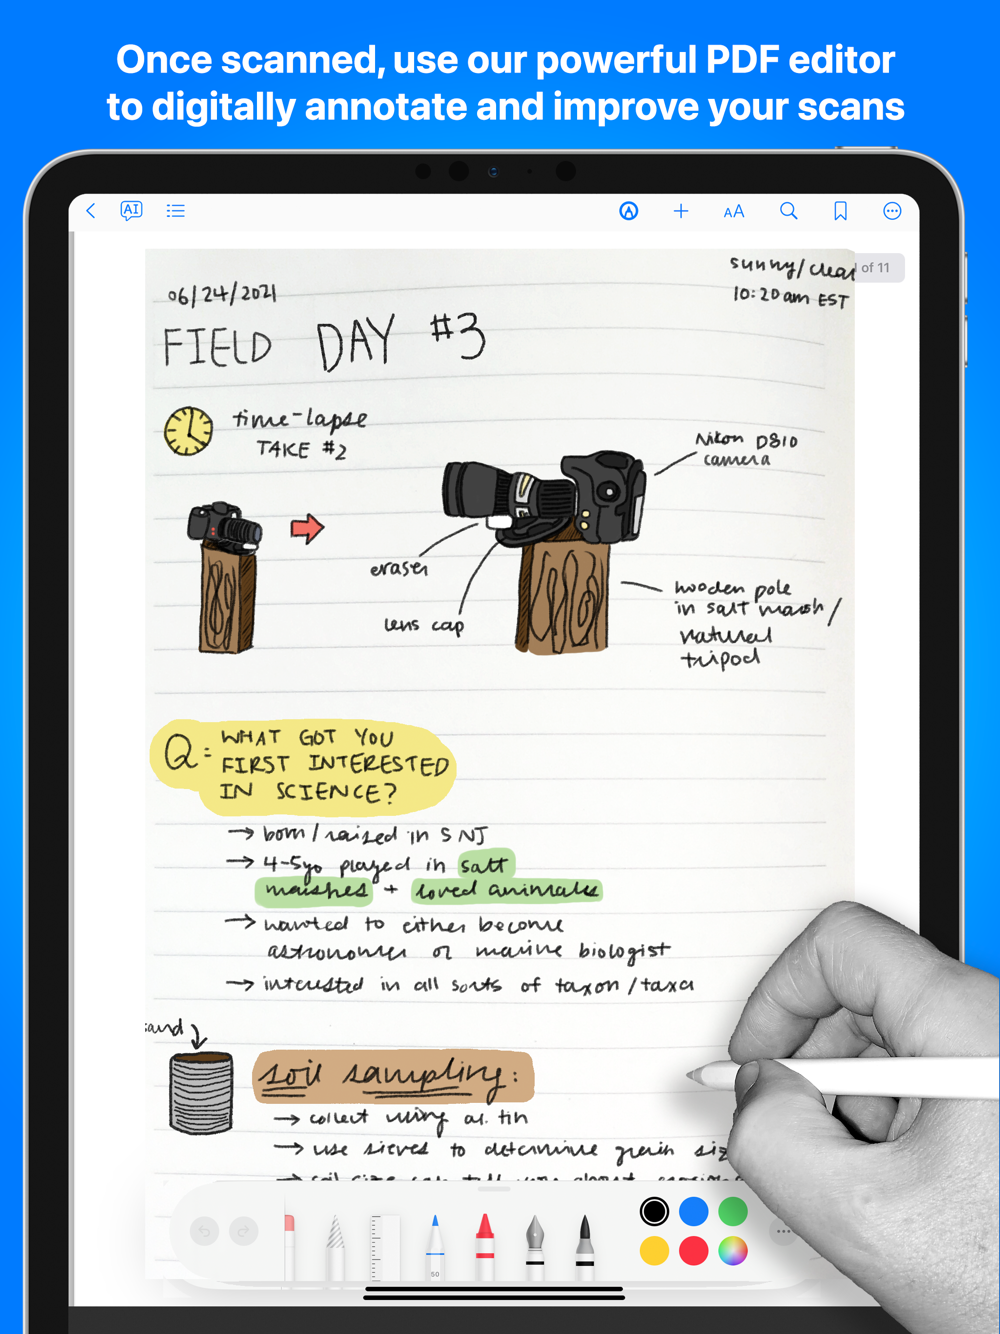 Once scanned, use our powerful PDF editor
to digitally annotate and improve your scans
AI
AA
of 11
sunny/clear
10:20am EST
06/24/2021
FIELD DAY #3
time-lapse
TAKE #2
Nikon D810
camera
eraser
lens cap
wooden pole
in salt marsh/
natural
tripod
Q: WHAT GOT YOU
FIRST INTERESTED
IN SCIENCE?
→ born/raised in SNJ
→ 4-5yo played in salt
marshes + loved animals
→ wanted to either become
astronomer or marine biologist
→ interested in all sorts of taxon/taxa
sand
soil sampling:
→ collect using al. tin
→ use sieves to determine grain siz
50